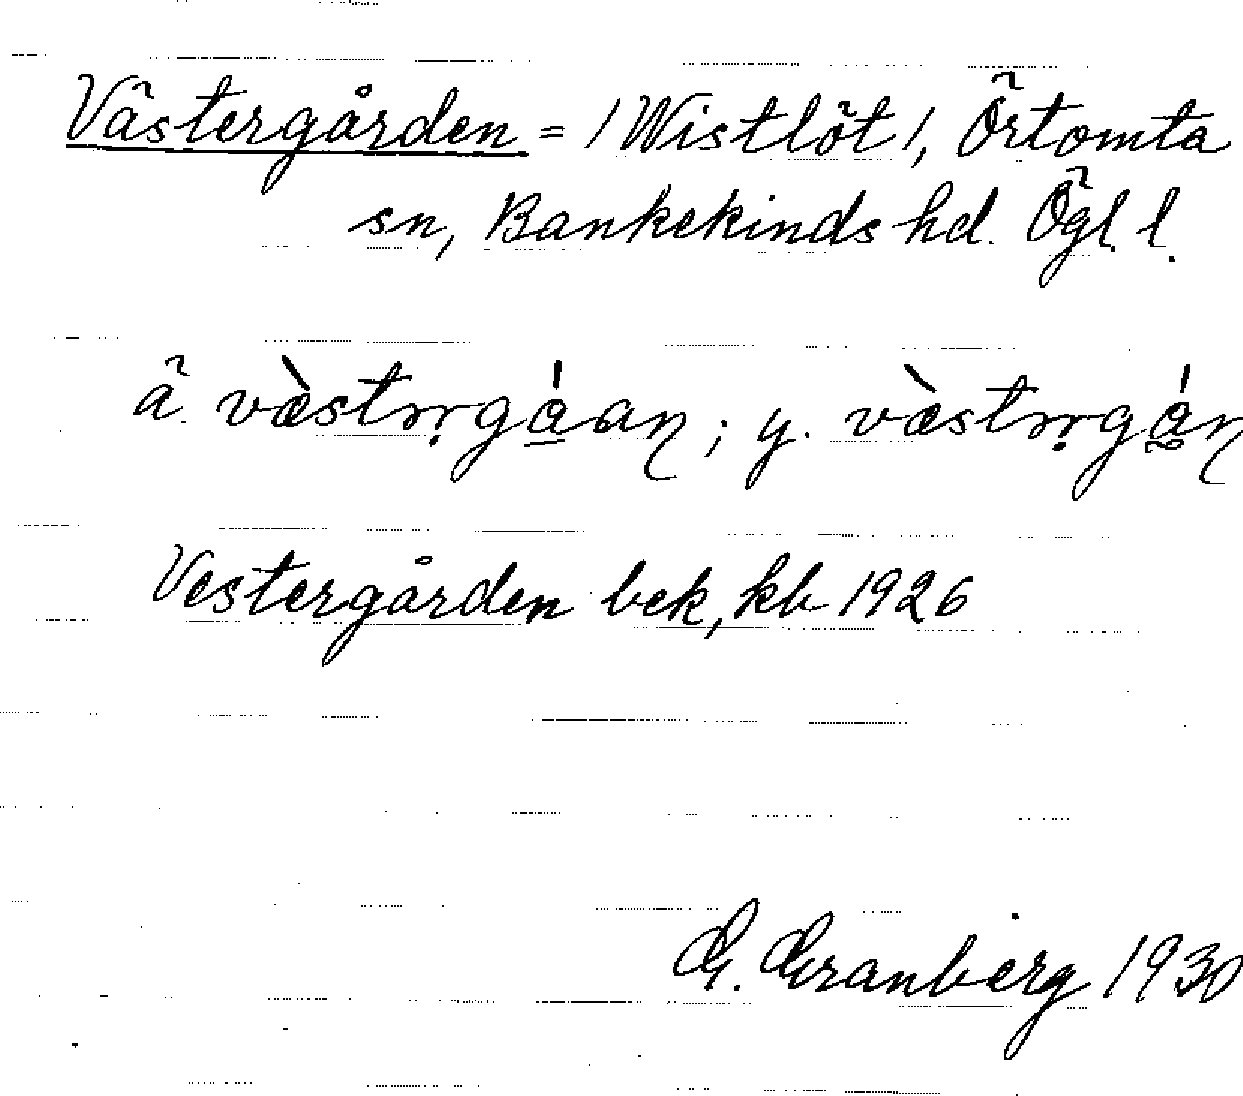 Västergården = /Wistlöt/, Örtomta
sn, Bankekinds hd. Ögl. l.
ä. væ̀strr̥gá̱an̥; y. væ̀strr̥gá̰n̥
Vestergården bek, kb 1926
G. Granberg 1930